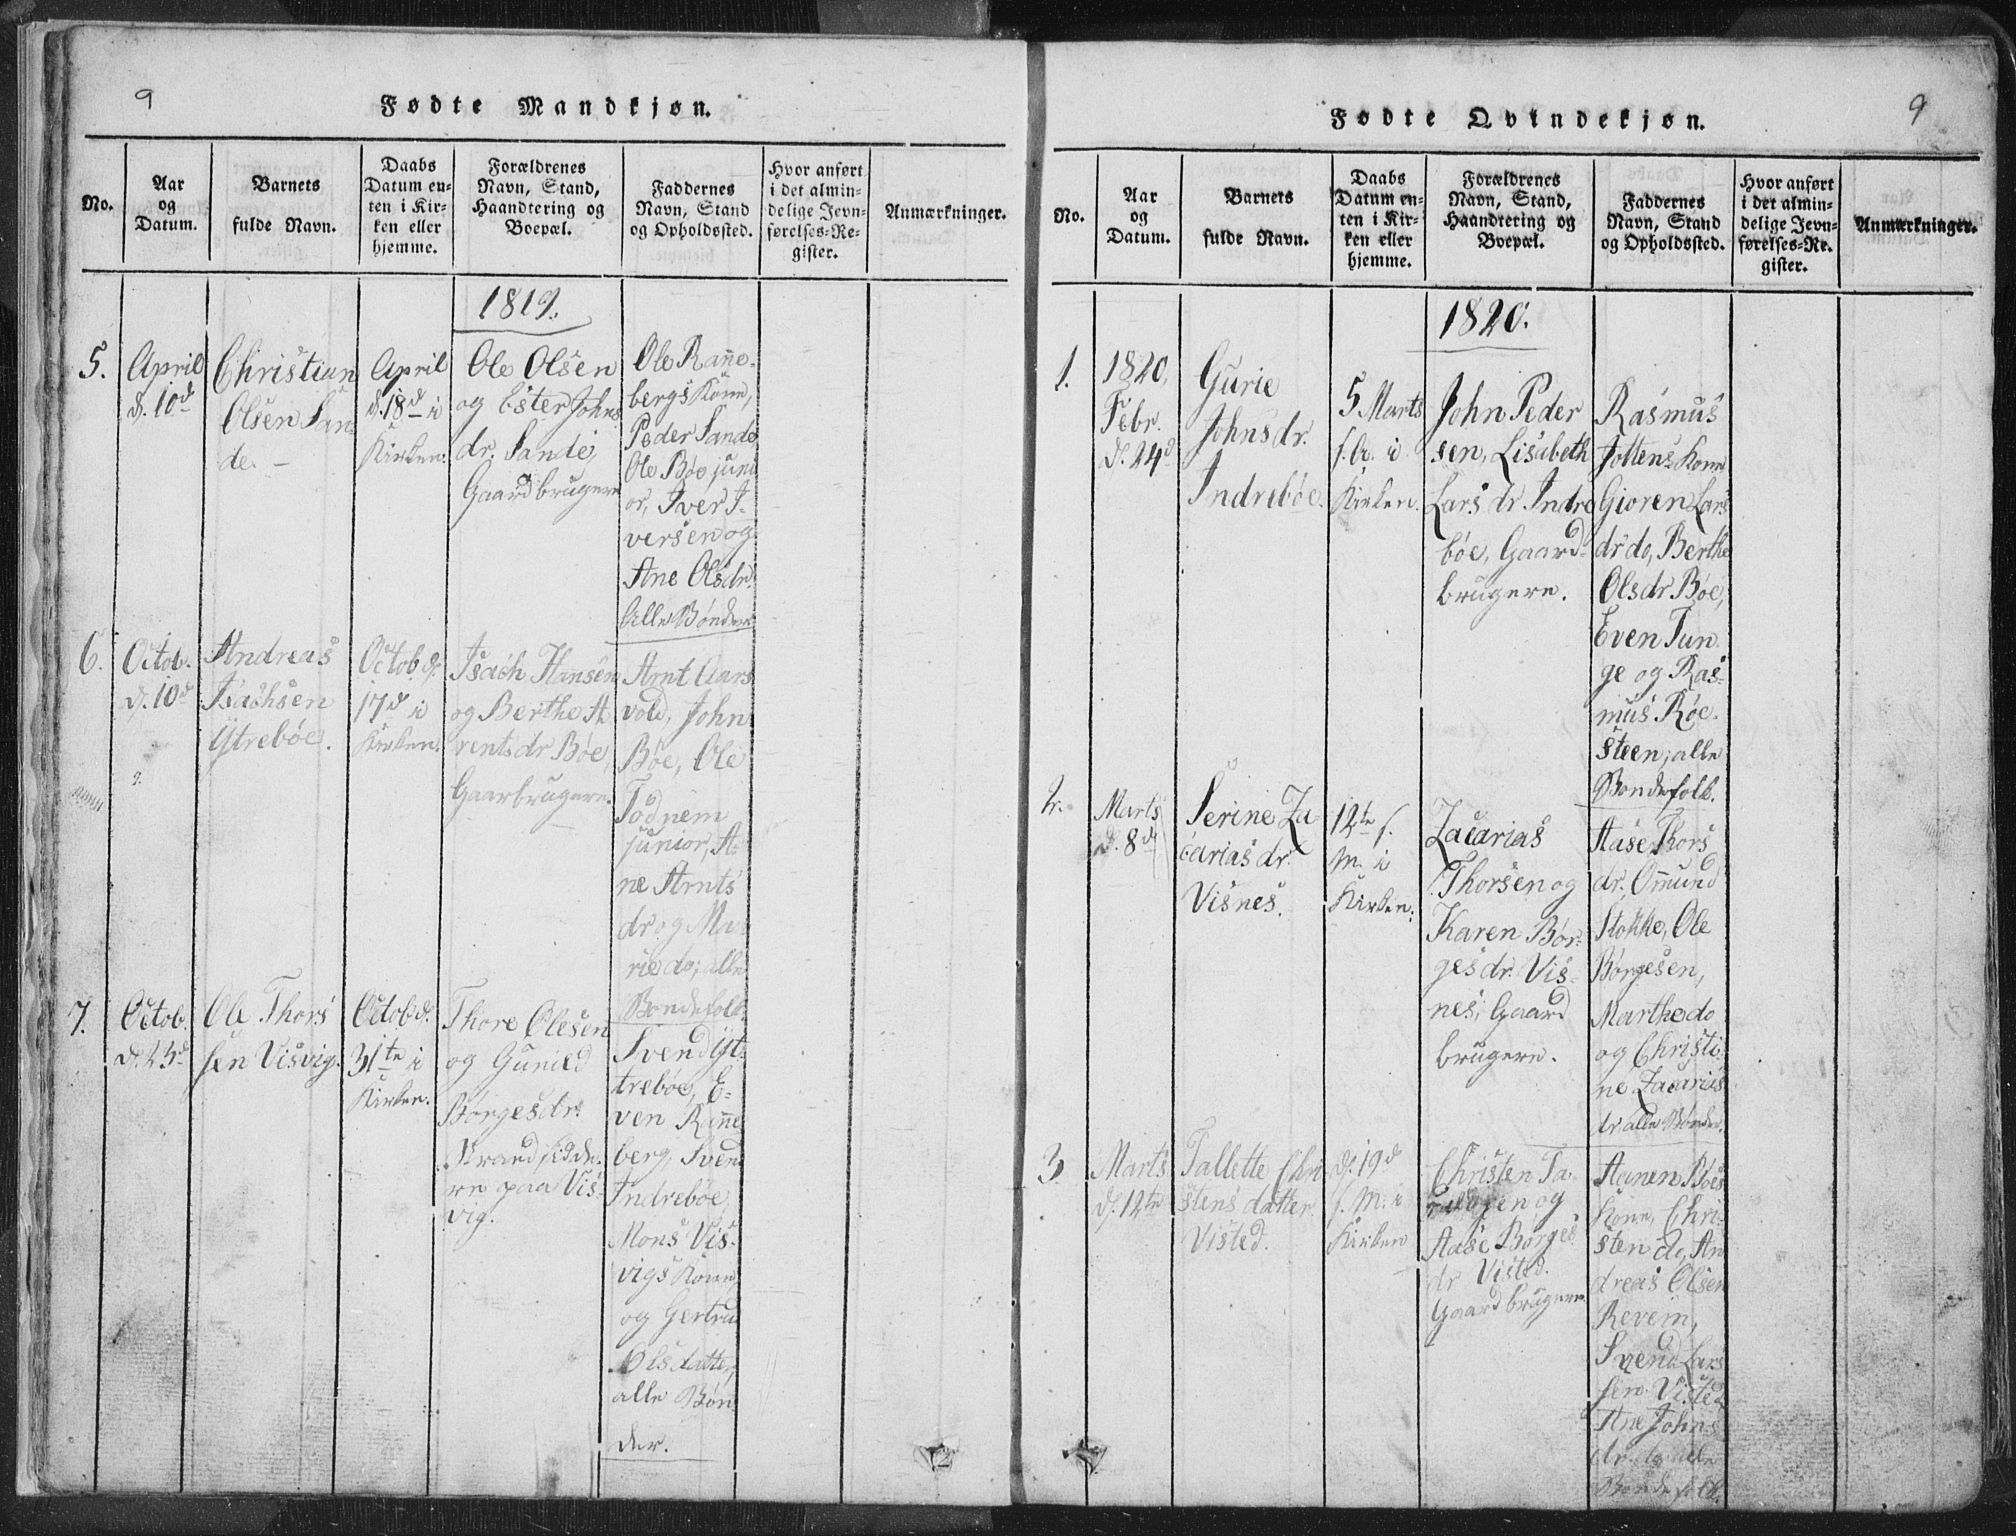 9
Fødte Mandkjøn.
No.
Aar
og
Datum.
Barnets
fulde Navn.
Daabs
Datum en-
ten i Kir-
ken eller
hjemme.
Forældrenes
Navn, Stand,
Haandtering og
Boepæl.
Faddernes
Navn, Stand
og Opholdssted.
Hvor anført
i det almin-
delige Jevn-
førelses-Re-
gister.
Anmærkninger.
1819.
5.
April
d. 10d
Christian
Olsen San
de. –
April
d. 18d i
Kirken.
Ole Olsen
og Ester Johns
dr. Sande,
Gaardbrugere
Ole Rañe-
bergs Kone,
Peder Sande
Ole Bøe juni
or, Iver I-
versen og
Ane Olsdr.
alle Bønder
6.
Octob.
d. 10d
Andreas
Isachsen
Ytrebøe.
Octob. d.
17d i
Kirken.
Isach Hansen
og Berthe A
rentsdr Bøe,
Gaarbrugere.
Arnt Aars
vold, John
Bøe, Ole
Todnem
junior, A-
ne Arnts
dr og Ma-
rie do, alle
Bondefolk.
7.
Octob.
d. 23d
Ole Thors
sen Visvig.
Octob. d.
31te i
Kirken.
Thore Olesen
og Gunild
Børgesdr.
Strandsidde-
re paa Vis-
vig.
Svend Yt-
trebøe, E-
ven Rañe
berg, Svend
Indrebøe,
Mons Vis-
vigs Kone
og Gertrud
Olsdatter,
alle Bøn-
der.
9
Fødte Qvindekjøn.
No.
Aar
og
Datum.
Barnets
fulde Navn.
Daabs
Datum en-
ten i Kir-
ken eller
hjemme.
Forældrenes
Navn, Stand,
Haandtering og
Boepæl.
Faddernes
Navn, Stand
og Opholdssted.
Hvor anført
i det almin-
delige Jevn-
førelses-Re-
gister.
Anmærkninger.
1820.
1.
1820,
Febr.
d. 24d
Gurie
Johnsdr.
Indrebøe.
5 Marts
s. A. i
Kirken.
John Peder
sen, Lisabeth
Lars dr Indre
bøe, Gaard-
brugere.
Rasmus
Joltens Kone
Gioren Lars
dr do, Berthe
Olsdr Bøe,
Even Tun
ge og Ras-
mus Røe-
steen, alle
Bondefolk.
2.
Marts
d. 8d
Serine Za
carias dr.
Visnes.
12te s.
M. i
Kirken.
Zacarias
Thorsen og
Karen Bør-
gesdr. Vis-
nes, Gaard
brugere.
Aase Thors
dr. Omund
Stokke, Ole
Børgesen,
Marthe do
og Christi-
ne Zacarias
dr alle Bønder.
3
Marts
d. 12te
Tallette Chri
stens datter
Visted.
d. 19d
s. M. i
Kirken
Christen Ta-
og
Aase Børges
dr Visted.
Gaardbrugere
Aanen Bøes
Kone, Chri-
sten do, An
dreas Olsen
Revem,
Svend Lars
sen Visted
Ane Johns
dr do alle
Bondefolk.